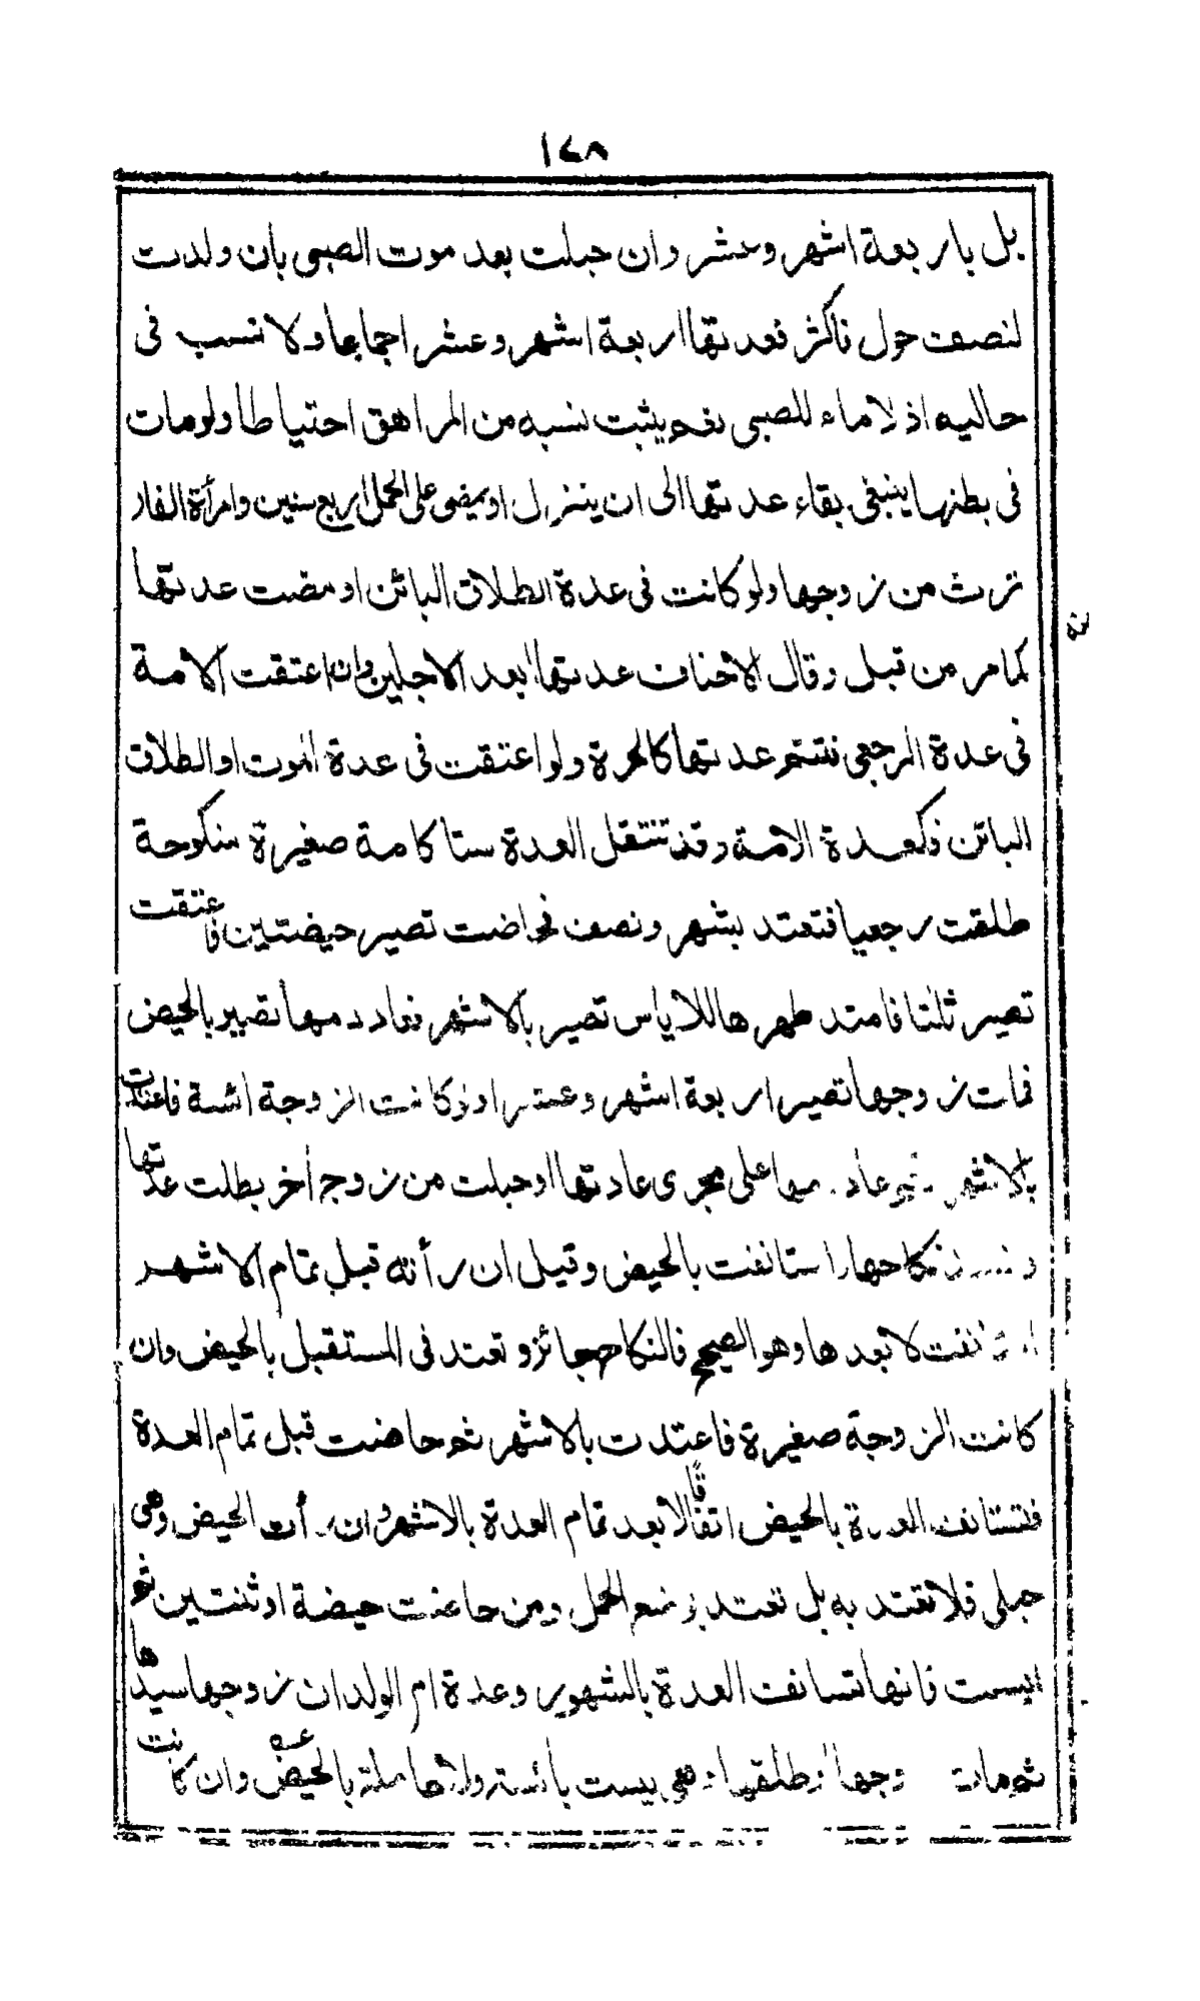 ١٤٨
بل باربعة اشهر وعشر وان حبلت بعد موت الصبى بان ولدت
لنصف حول فاكثر فعدتها اربعة اشهر وعشر اجماعا ولا نسب فى
حاليه اذ لا ماء للصبى نعم يثبت نسبه من المراهق احتياطا ولومات
فى بطنها ينبغى بقاء عدتها الى ان ينزل او يمضى على الحمل اربع سنين وامرأة الفار
ترث من زوجها ولو كانت فى عدة الطلاق البائن او مضت عدتها
كمامر من قبل وقال الاحناف عدتها ابعد الاجلين وان اعتقت الامة
فى عدة الرجعى تتم عدتها كالحرة ولو اعتقت فى عدة الموت او الطلاق
البائن فكعدة الامة وقد تنتقل العدة ستا كامة صغيرة منكوحة
طلقت رجعيا فتعتد بشهر ونصف فحاضت تصير حيضتين فاعتقت
تصير ثلثا فامتد طهرها للاياس تصير بالاشهر فعاد دمها تصير بالحيض
فمات زوجها تصير اربعة اشهر وعشرا ولو كانت الزوجة ائسة فاعتدت
بالاشهر ثم عاد دمها على مجرى عادتها او حبلت من زوج أخر بطلت عدتها
وفسد نكاحها واستانفت بالحيض وقيل ان رأته قبل تمام الاشهر
استانفت لا بعدها وهو الصحيح فالنكاح جائز وتعتد فى المستقبل بالحيض وان
كانت الزوجة صغيرة فاعتدت بالاشهر ثم حاضت قبل تمام العدة
فتستانف العدة بالحيض اتفاقا لا بعد تمام العدة بالاشهر وان رأت الحيض وهى
حبلى فلا تعتد به بل تعتد بوضع الحمل ومن حاضت حيضة او ثنتين ثم
ايست فانها تستانف العدة بالشهور وعدة ام الولد ان زوجها سيدها
ثم مات زوجها او طلقها وهى ليست بائسة ولا حاملة بالحيض وان كانت